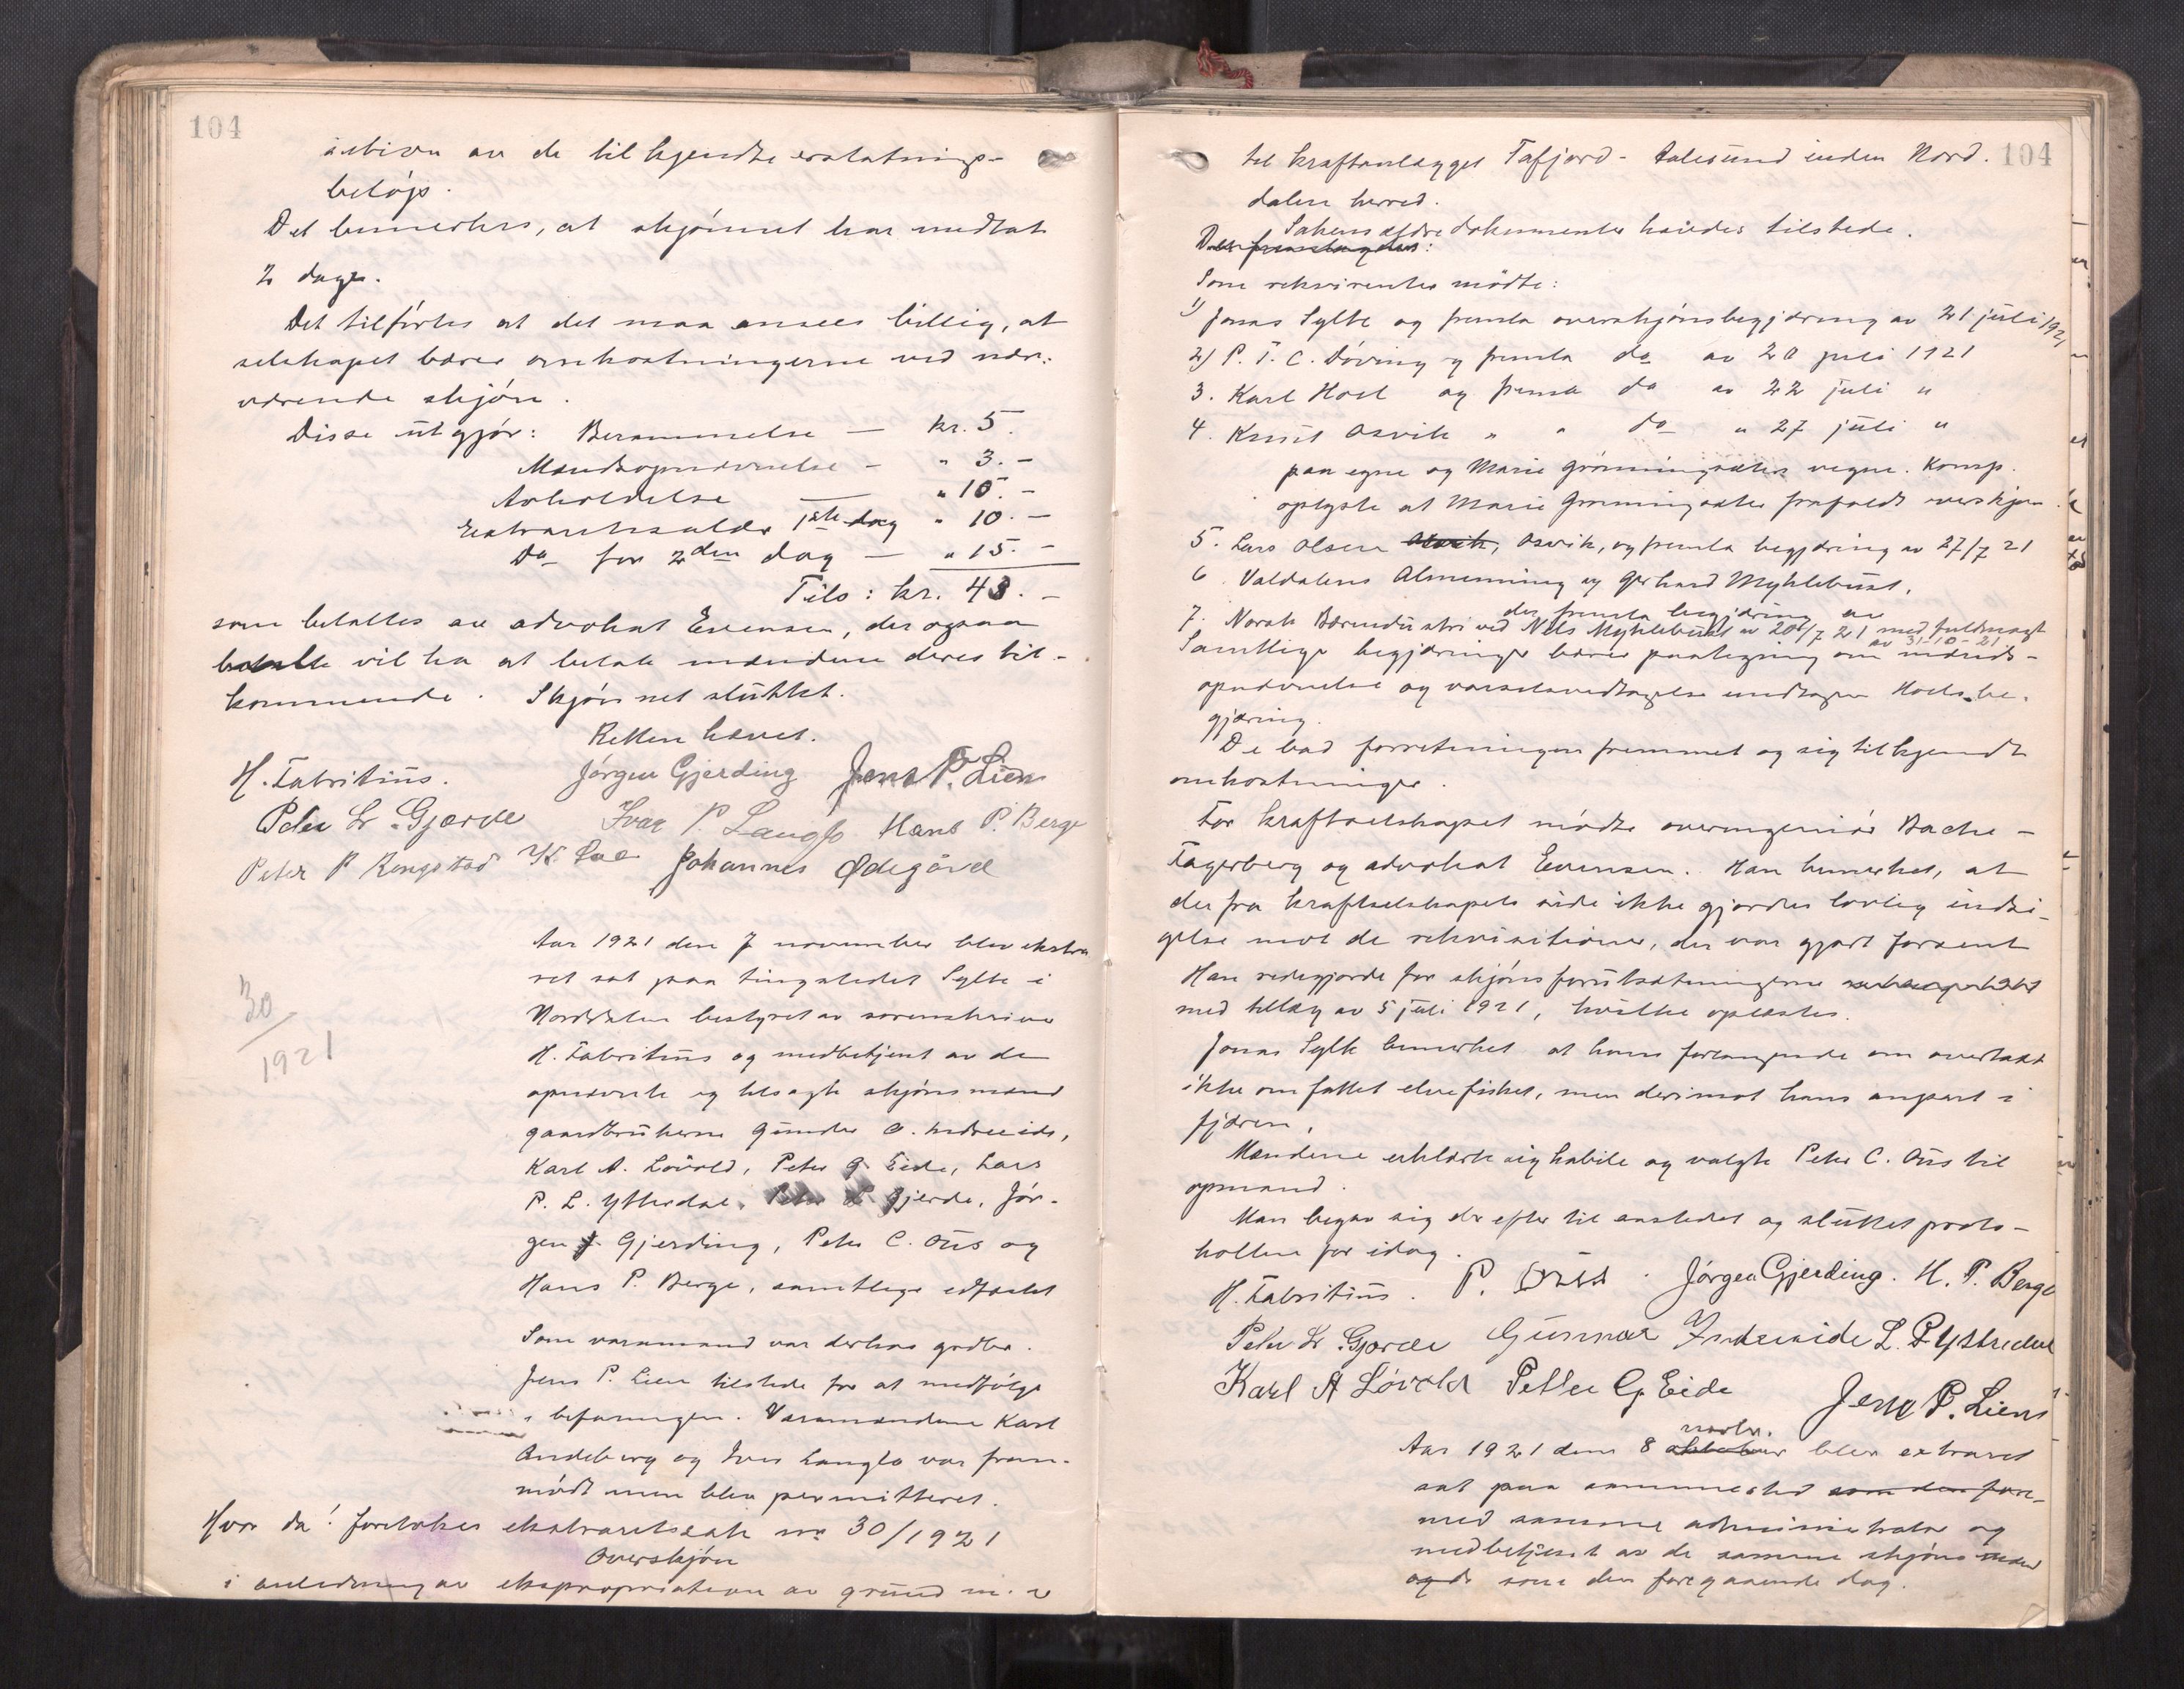 104
av de tilkjendte erstatnings-
beløp.
Det bemerkes, at skjønnet har medtat
2 dage.
Det tilførtes at det maa ansees billig, at
selskapet bærer omkostningerne ved nær-
værende skjøn.
Disse utgjør: Berammelse — kr. 5.
Mandsopnævnelse - " 3.-
Avholdelse — " 10.-
Extraretssalær 1ste dag " 10.-
Do for 2den dag — " 15.-
Tils: kr. 43.-
som betaltes av advokat Evensen, der ogsaa
vil ha at betale mændene deres til-
kommende. Skjønnet sluttet.
Retten hævet.
H. Fabritius. Jørgen Gjerding Jens P. Lien
Peter Lr. Gjærde Ivar P. Langlo Hans P. Berge
Peter P Kongstad K. Johannes Ødegård
30/1921
Aar 1921 den 7 november blev ekstra
ret sat paa tingstedet Sylte i
Norddalen bestyret av sorenskriver
H. Fabritius og medbetjent av de
opnævnte og tilsagte skjønsmænd
gaardbrukerne Gunder O. Indreeide,
Karl A. Løvold, Peter G. Eide, Lars
P. L. Ytterdal, Peter L Gjerde, Jør-
gen J. Gjerding, Peter C. Øus og
Hans P. Berge, samtlige edfæstet
Som varamand var derhos gaardbr.
Jens P. Lien tilstede for at medfølge
i befaringen. Varamændene Karl
Andeberg og Iver Langlo var frem-
mødt men blev permitteret.
Hvor da: foretokes ekstraretssak no 30/1921
Overskjøn
i anledning av ekspropriation av grund m.v
104
til kraftanlægget Tafjord - Aalesund inden Nord-
dalen herred.
Sakens ældre dokumenter havdes tilstede.
Der fremlagdes:
Som rekvirenter mødte:
1) Jonas Sylte og fremla overskjønsbegjæring av 21 juli 1921
2) P. T. C. Døving og fremla do av 20 juli 1921
3. Karl Hoel og fremla do av 22 juli "
4. Knut Osvik " " do " 27 juli "
paa egne og Marie Grønningsæters vegne. Komp.
oplyste at Marie Grønningsæter frafaldt overskjøn.
5. Lars Olsen Osvik, Osvik, og fremla begjæring av 27/7 21
6. Valdalens Almenning og Gerhard Myklebust.
der fremla begjæring av
7. Norsk Bærindustri ved Nils Myklebust av 20/7 21 med fuldmagt
av 31-10-21
Samtlige begjæringer bærer paategning om mænds-
opnævnelse og varselsvedtagelse undtagen Hoels be-
gjæring.
De bad forretningen fremmet og sig tilkjendt
omkostninger.
For kraftselskapet mødte overingeniør Bache-
Fagerberg og advokat Evensen. Han bemerket, at
der fra kraftselskapets side ikke gjordes lovlig indsi-
gelse mot de rekvisitioner, der var gjort forsent
Han redegjorde for skjønsforutsætningerne
med tillæg av 5 juli 1921, hvilke oplæstes.
Jonas Sylte bemerket at hans forlangende om overtakst
ikke omfattet elvefisket, men derimot hans anpart i
fjæren.
Mændene erklærte sig habile og valgte Peter C. Øus til
opmand.
Man begav sig derefter til aastedet og sluttet proto-
kollen for idag.
H. Fabritius. P. Øus. Jørgen Gjerding. H. P. Berge
Peter Lr. Gjærde Gunnar Indreeide L. P Yttredal
Karl A Løvold Petter G. Eide Jens P. Lien
novbr.
Aar 1921 den 8 oktober blev extraret
sat paa sammested som den fore-
med samme administrator og
medbetjent av de samme skjønsmænd
og de som den foregaaende dag.